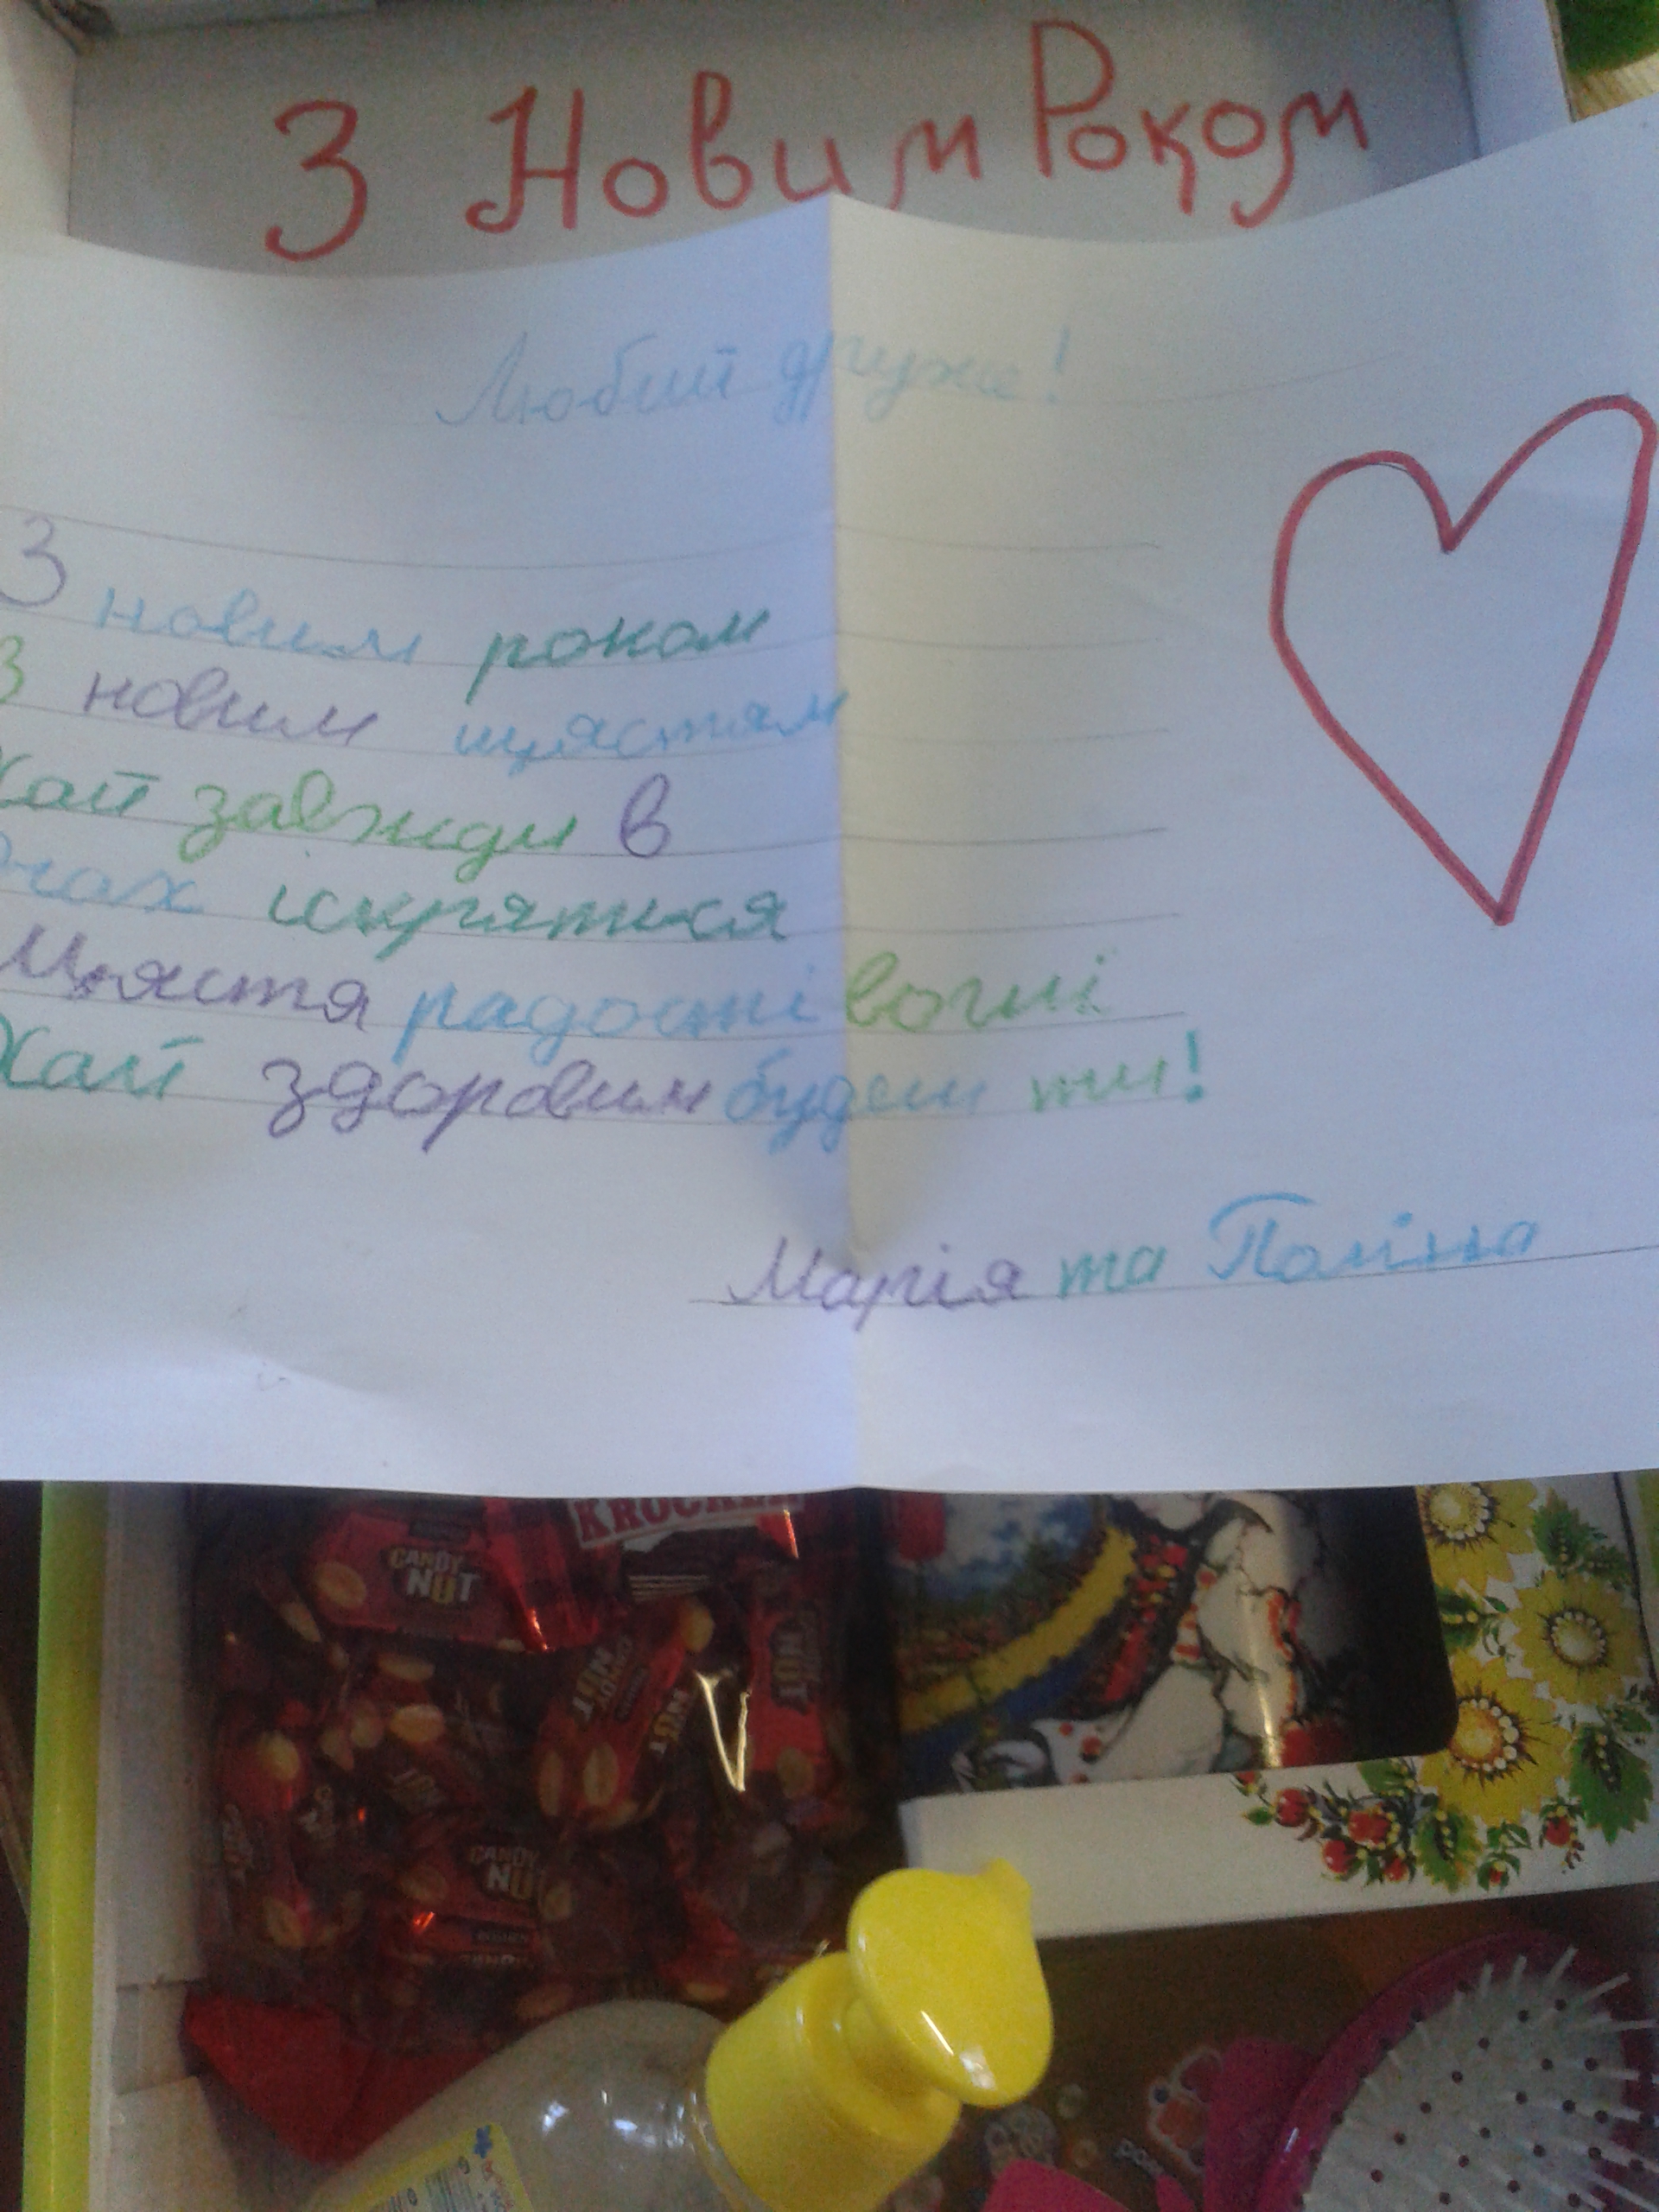 З Новим Роком
Любий друже!
З новим роком
З новим щястям
Хай завжди в
Очах іскряться
Щястя радостні вогні
Хай здоровим будеш ти!
Марія та Поліна
KROCKER
CANDY
NUT
NUT
NUT
NUT
CANDY
NUT
ROSHEN